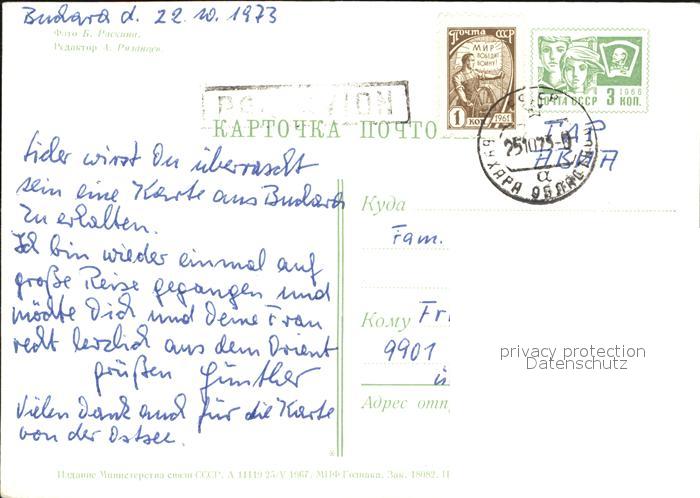 Buchara d. 22.10.1973
Фото Б. Раскина.
Редактор А. Рязанцев.
ПОЧТА СССР
МИР
ПОБЕДИТ
ВОЙНУ!
1 КОП. 1961
1966
ПОЧТА СССР 3 КОП.
PAR AVION
КАРТОЧКА ПОЧТО
251073
БУХАРА ОБЛ
ГДР
АВИА
Sicher wirst Du überrascht
sein eine Karte aus Buchara
zu erhalten.
Ich bin wieder einmal auf
große Reise gegangen und
möchte Dich und Deine Frau
recht herzlich aus dem Orient
grüßen Günther
Vielen Dank auch für die Karte
von der Ostsee.
Куда
Fam.
Кому Fri
9901
ü
Адрес отп
privacy protection
Datenschutz
Издание Министерства связи СССР. А 11119 25/V 1967. МПФ Гознака. Зак. 18082.